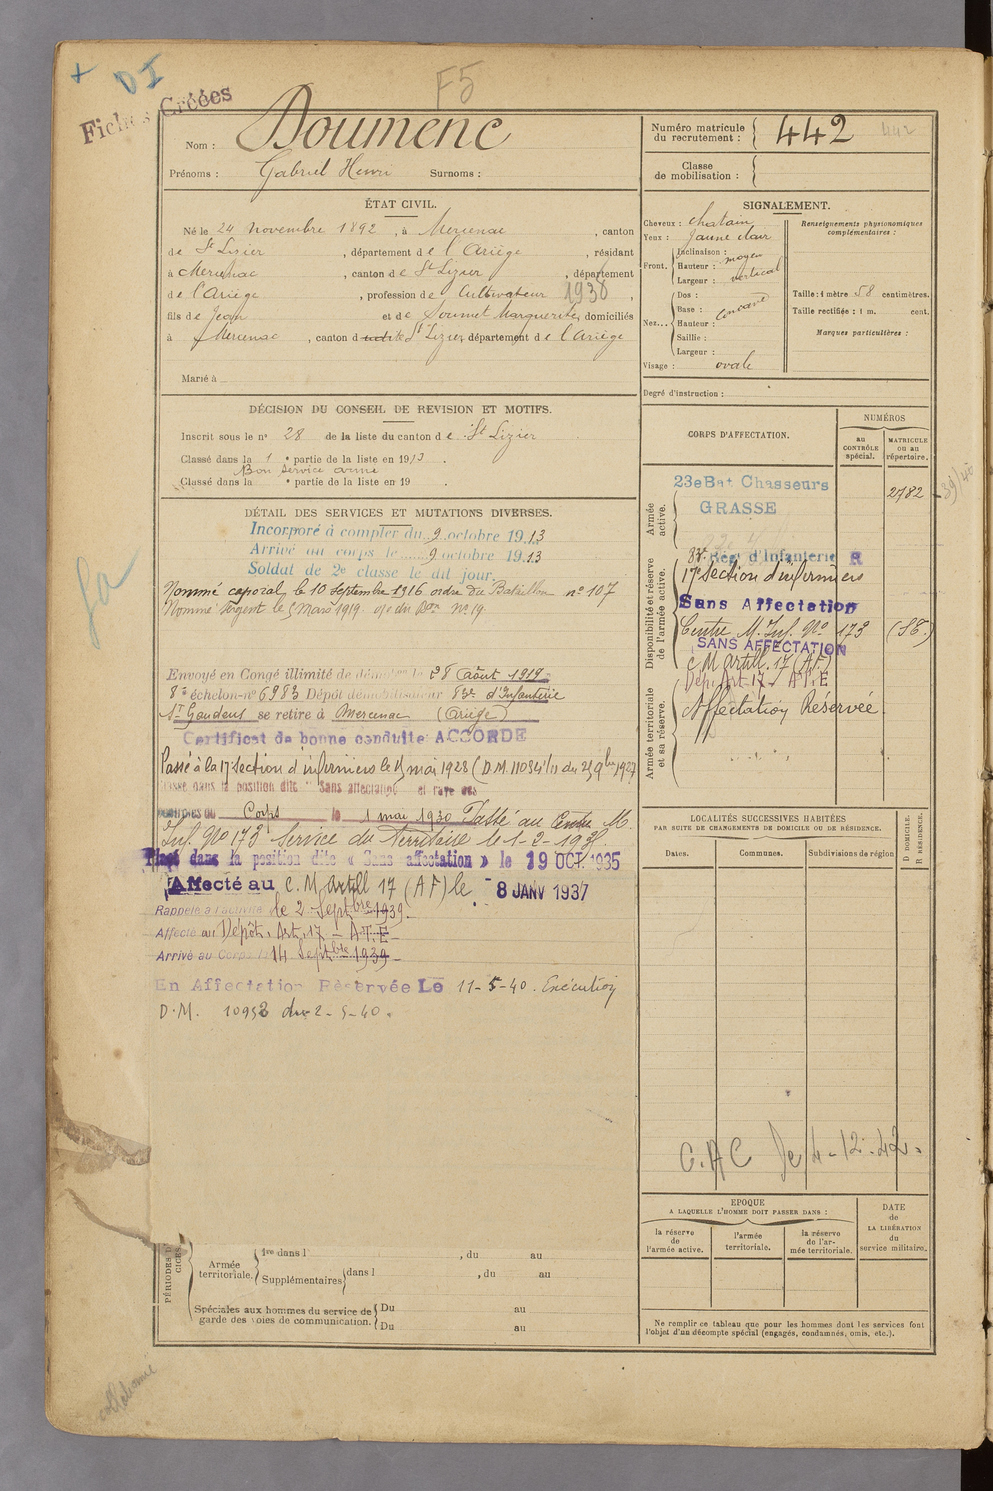 + D I
F5
Fiches Créées
Nom : Doumenc
Prénoms : Gabriel Henri Surnoms :
Numéro matricule du recrutement : 442 442
Classe de mobilisation :
ÉTAT CIVIL.
Né le 24 Novembre 1892, à Mercenac, canton
de St Lizier, département de l'Ariège, résidant
à Mercenac, canton de St Lizier, département
de l'Ariège, profession de Cultivateur 1930,
fils de Jean et de Soumet Marguerite, domiciliés
à Mercenac, canton dudit St Lizier département de l'Ariège
Marié à
SIGNALEMENT.
Cheveux : chatain
Yeux : Jaune clair
Front. Inclinaison :
Hauteur : moyen
Largeur : vertical
Nez... Dos :
Base : concave
Hauteur :
Saillie :
Largeur :
Visage : ovale
Renseignements physionomiques complémentaires :
Taille : 1 mètre 58 centimètres.
Taille rectifiée : 1 m. cent.
Marques particulières :
Degré d'instruction :
DÉCISION DU CONSEIL DE REVISION ET MOTIFS.
Inscrit sous le n° 28 de la liste du canton de St Lizier
Classé dans la 1e partie de la liste en 1913.
Bon service armé
Classé dans la e partie de la liste en 19 .
DÉTAIL DES SERVICES ET MUTATIONS DIVERSES.
Incorporé à compter du 9 octobre 1913
Arrivé au corps le 9 octobre 1913
Soldat de 2e classe le dit jour
Nommé caporal le 10 septembre 1916 ordre du Bataillon n° 107
Nommé Sergent le 5 Mars 1919. du Bon N° 19.
Envoyé en Congé illimité de le 28 Août 1919
8e échelon n° 6983 Dépôt démobilisateur 83e d'Infanterie
St Gaudens se retire à Mercenac (Ariège)
Certificat de bonne conduite ACCORDÉ
Passé à la 17 Section d'infirmiers le 15 mai 1928 (D.M. 11034 1/11 du 25 9bre 1927
Classé dans la position dite "Sans affectation" et rayé des
contrôles du Corps le 1 mai 1930 Passé au Centre M
Inf. No 173 Service du Territoire le 1-2-193
Placé dans la position dite « Sans affectation » le 19 OCT. 1935
Affecté au C. M Artill 17 (AF) le 8 JANV 1937
Rappelé à l'activité le 2 Septbre 1939.
Affecté au Dépôt. Art. 17 - A.T.E -
Arrivé au Corps le 14 Septbre 1939 -
En Affectation Réservée Le 11-5-40. Exécution
D.M. 10952 du 2-5-40.
CORPS D'AFFECTATION.
NUMÉROS
au CONTRÔLE spécial.
MATRICULE ou au répertoire.
Armée active.
23e Bat Chasseurs
GRASSE
2782
39/40
Disponibilité et réserve de l'armée active.
83e Rég. d'Infanterie R
17e Section d'infirmiers
Sans Affectation
Centre M. Inf. No 173 (S.T.)
SANS AFFECTATION
C M Artill. 17 (AF)
Dép. Art 17 - A T.E
Armée territoriale et sa réserve.
Affectation Réservée
LOCALITÉS SUCCESSIVES HABITÉES
PAR SUITE DE CHANGEMENTS DE DOMICILE OU DE RÉSIDENCE.
Dates.
Communes.
Subdivisions de région
D DOMICILE.
R RÉSIDENCE.
C.A C le 4-12-42.
EPOQUE
A LAQUELLE L'HOMME DOIT PASSER DANS :
la réserve de l'armée active.
l'armée territoriale.
la réserve de l'armée territoriale.
DATE de LA LIBÉRATION du service militaire.
Ne remplir ce tableau que pour les hommes dont les services font
l'objet d'un décompte spécial (engagés, condamnés, omis, etc.).
Armée territoriale.
1re dans l , du au
Supplémentaires dans l , du au
Spéciales aux hommes du service de garde des voies de communication.
Du au
Du au